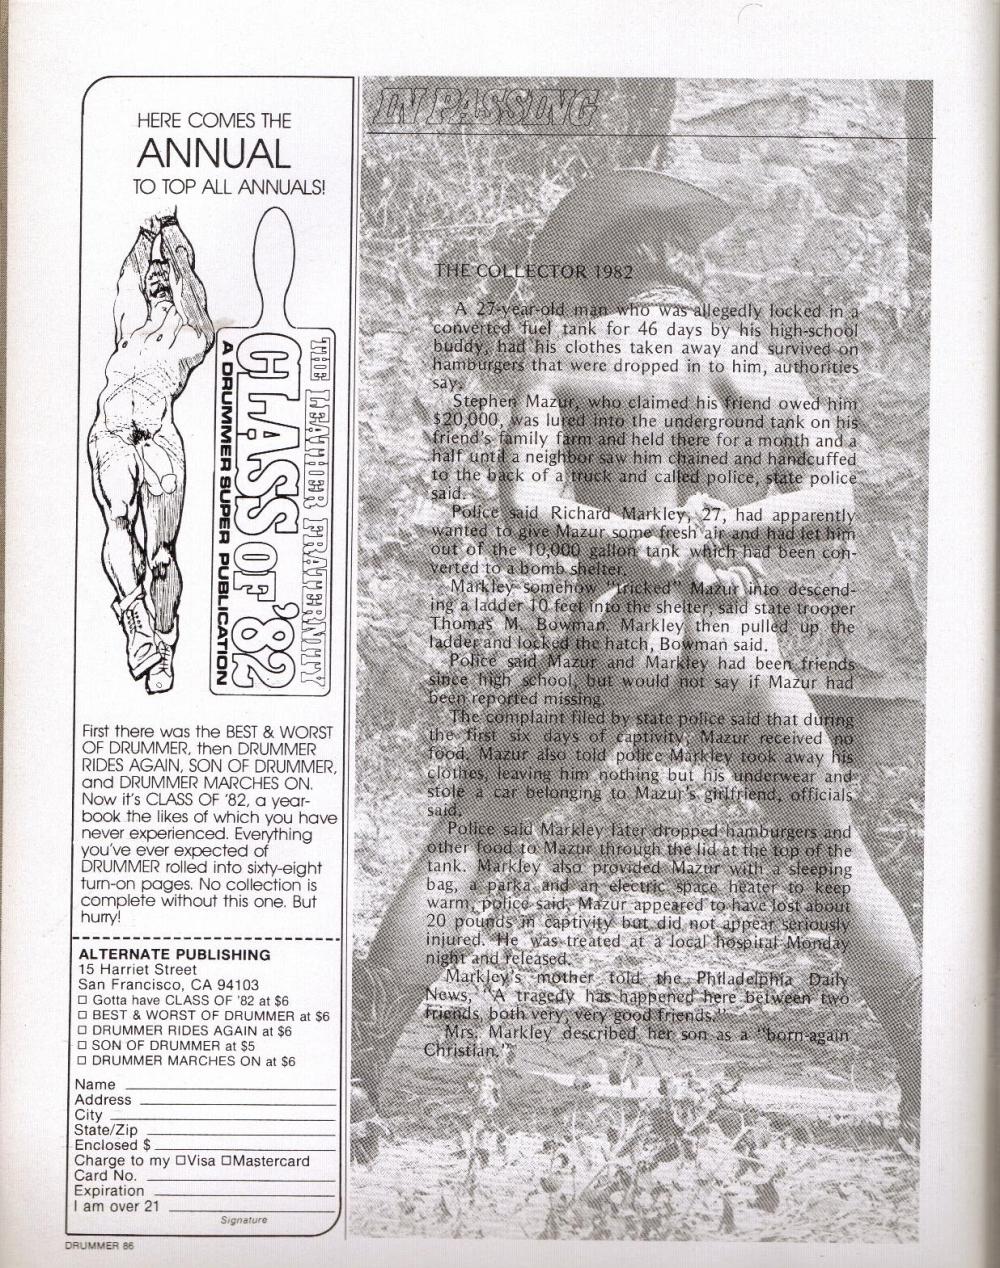 HERE COMES THE
ANNUAL
TO TOP ALL ANNUALS!
THE LEATHER FRATERNITY
CLASS OF '82
A DRUMMER SUPER PUBLICATION
First there was the BEST & WORST
OF DRUMMER, then DRUMMER
RIDES AGAIN, SON OF DRUMMER,
and DRUMMER MARCHES ON.
Now it's CLASS OF '82, a year-
book the likes of which you have
never experienced. Everything
you've ever expected of
DRUMMER rolled into sixty-eight
turn-on pages. No collection is
complete without this one. But
hurry!
ALTERNATE PUBLISHING
15 Harriet Street
San Francisco, CA 94103
☐ Gotta have CLASS OF '82 at $6
☐ BEST & WORST OF DRUMMER at $6
☐ DRUMMER RIDES AGAIN at $6
☐ SON OF DRUMMER at $5
☐ DRUMMER MARCHES ON at $6
Name
Address
City
State/Zip
Enclosed $
Charge to my ☐Visa ☐Mastercard
Card No.
Expiration
I am over 21
Signature
DRUMMER 86
IN PASSING
THE COLLECTOR 1982
A 27-year-old man who was allegedly locked in a
converted fuel tank for 46 days by his high-school
buddy, had his clothes taken away and survived on
hamburgers that were dropped in to him, authorities
say.
Stephen Mazur, who claimed his friend owed him
$20,000, was lured into the underground tank on his
friend's family farm and held there for a month and a
half until a neighbor saw him chained and handcuffed
to the back of a truck and called police, state police
said.
Police said Richard Markley, 27, had apparently
wanted to give Mazur some fresh air and had let him
out of the 10,000 gallon tank which had been con-
verted to a bomb shelter.
Markley somehow "tricked" Mazur into descend-
ing a ladder 10 feet into the shelter, said state trooper
Thomas M. Bowman. Markley then pulled up the
ladder and locked the hatch, Bowman said.
Police said Mazur and Markley had been friends
since high school, but would not say if Mazur had
been reported missing.
The complaint filed by state police said that during
the first six days of captivity, Mazur received no
food. Mazur also told police Markley took away his
clothes, leaving him nothing but his underwear and
stole a car belonging to Mazur's girlfriend, officials
said.
Police said Markley later dropped hamburgers and
other food to Mazur through the lid at the top of the
tank. Markley also provided Mazur with a sleeping
bag, a parka and an electric space heater to keep
warm, police said, Mazur appeared to have lost about
20 pounds in captivity but did not appear seriously
injured. He was treated at a local hospital Monday
night and released.
Markley's mother told the Philadelphia Daily
News, "A tragedy has happened here between two
friends, both very, very good friends."
Mrs. Markley described her son as a "born-again
Christian."